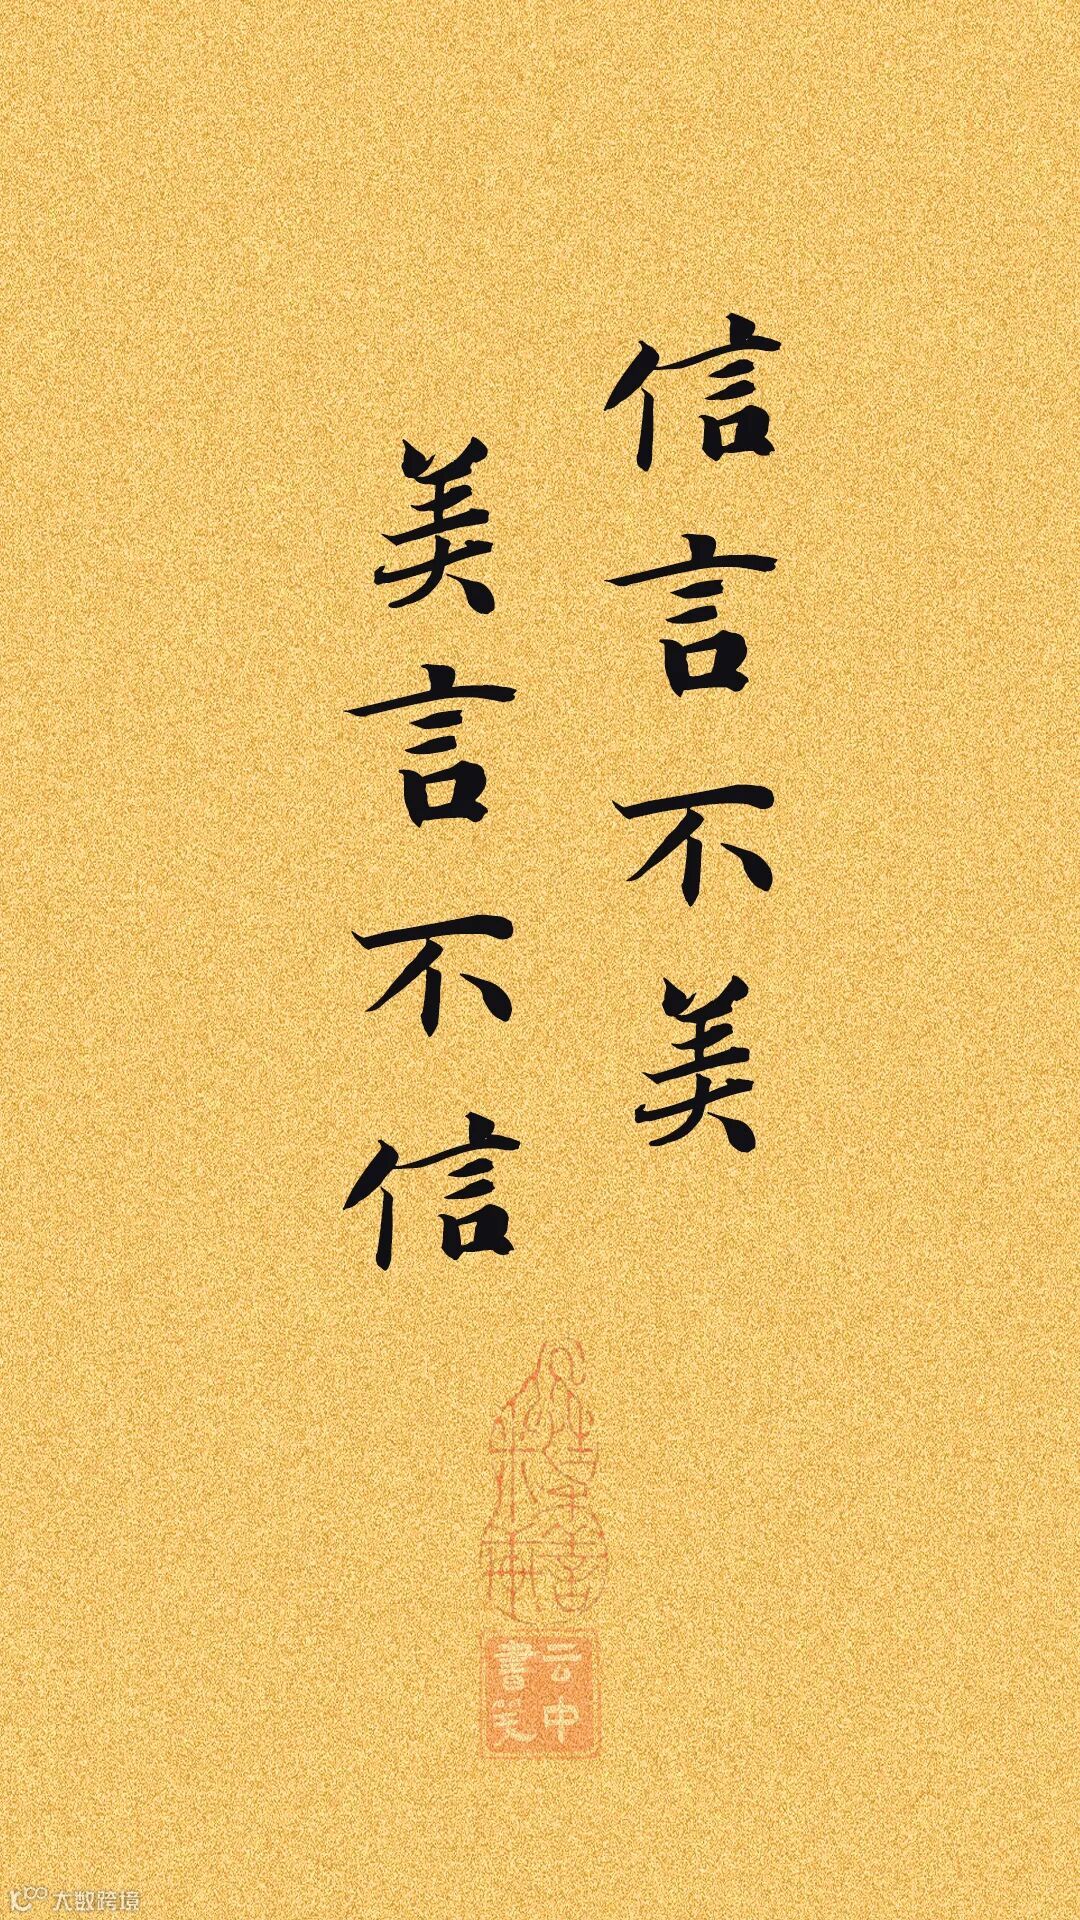 信言不美
美言不信
云中
書笑
大数跨境